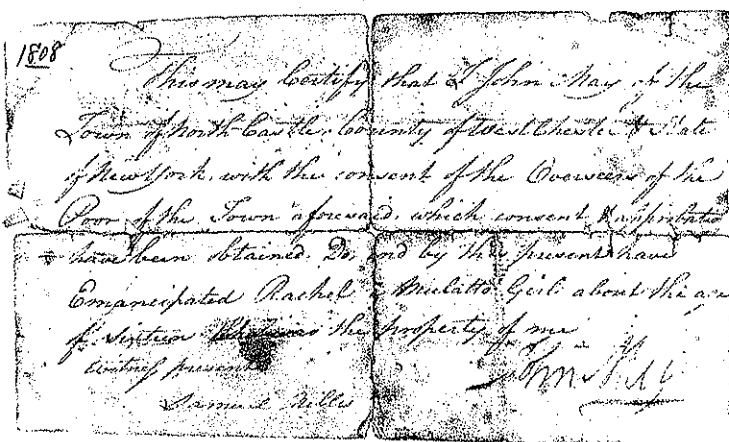 1808
This may Certify that I John May of the
Town of North Castle County of West Chester & State
of New York, with the consent of the Overseers of the
Poor of the Town aforesaid, which consent & approbation
have been obtained. Do, and by this present have
Emancipated Rachel a Mulatto Girl about the age
of sixteen the property of me
Witness present
Samuel
John